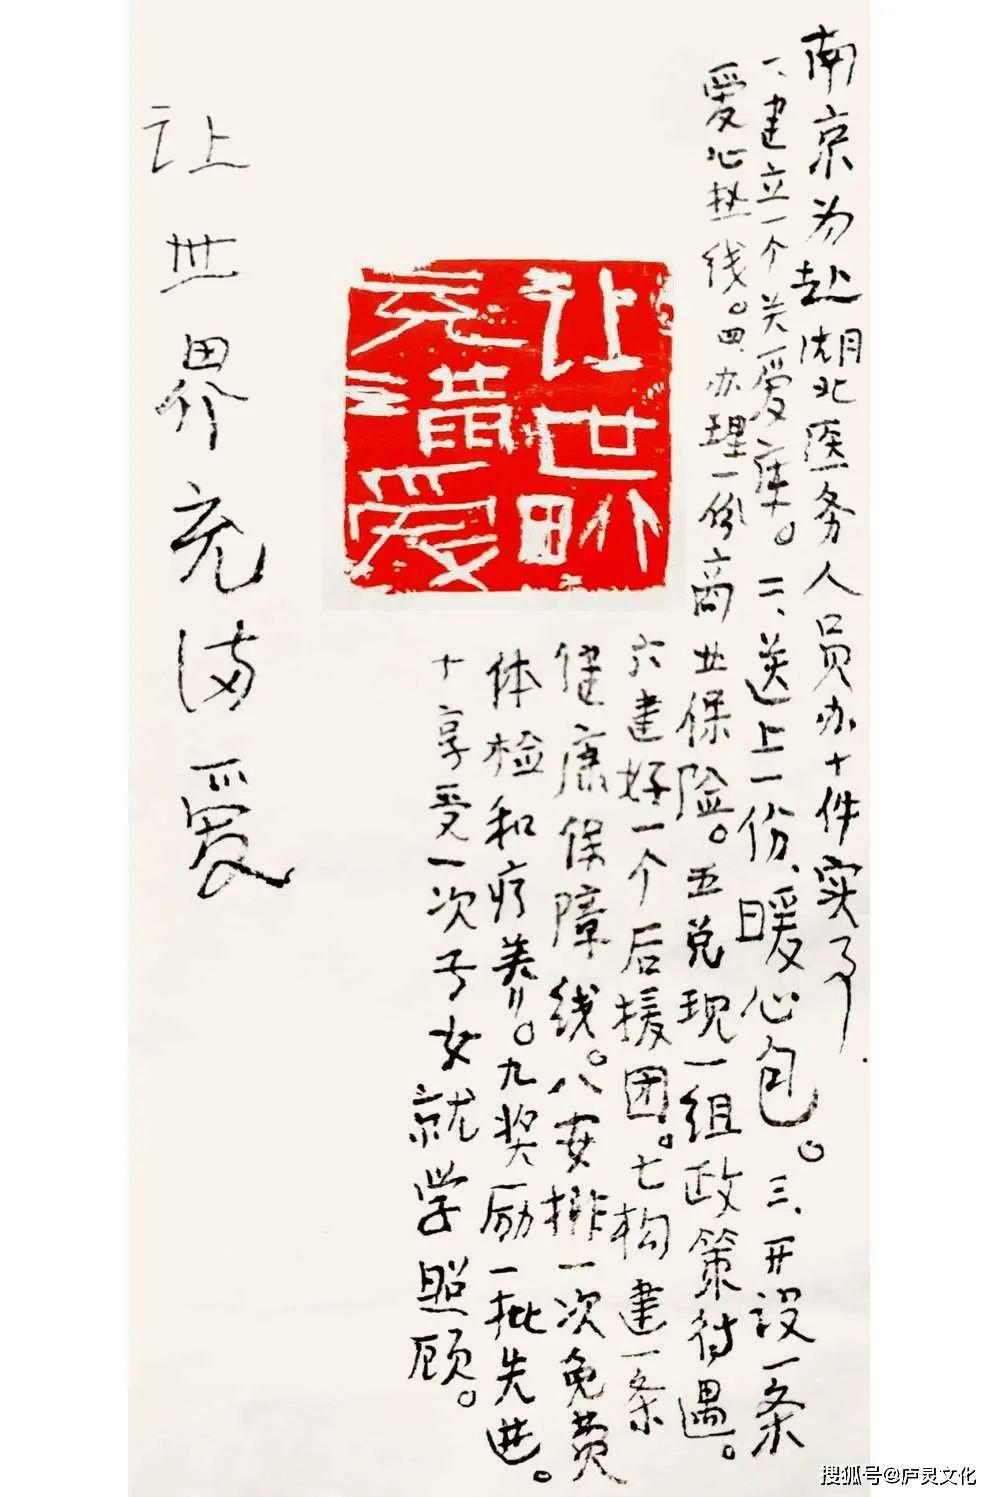 南京为赴湖北医务人员办十件实事
一、建立一个关爱库。二、送上一份、暖心包。三、开设一条
爱心热线。四、办理一份商业保险。五兑现一组政策待遇。
六建好一个后援团。七构建一条
健康保障线。八安排一次免费
体检和疗养。九奖励一批先进。
十享受一次子女就学照顾。
让世界
充满爱
让世界充满爱
搜狐号@庐灵文化